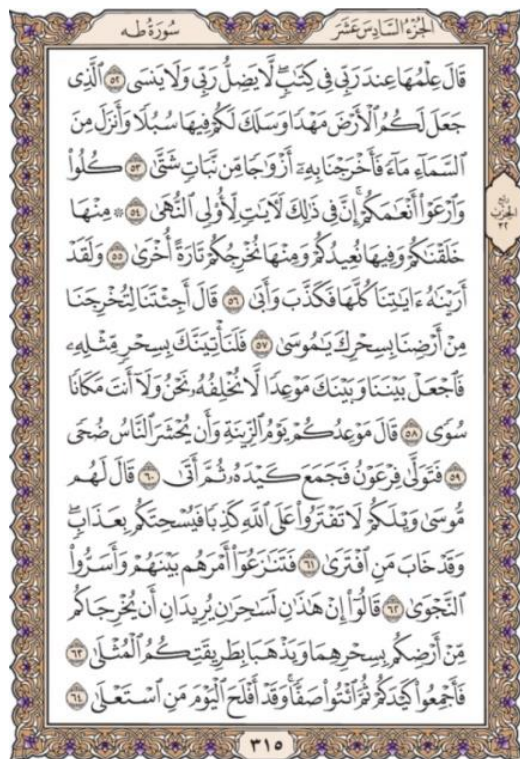 الجُزْءُ السَّادِسَ عَشَرَ
سُورَةُ طه
قَالَ عِلْمُهَا عِندَ رَبِّي فِي كِتَٰبٍ لَّا يَضِلُّ رَبِّي وَلَا يَنسَى ٥٢ ٱلَّذِي
جَعَلَ لَكُمُ ٱلْأَرْضَ مَهْدًا وَسَلَكَ لَكُمْ فِيهَا سُبُلًا وَأَنزَلَ مِنَ
ٱلسَّمَآءِ مَآءً فَأَخْرَجْنَا بِهِۦٓ أَزْوَٰجًا مِّن نَّبَاتٍ شَتَّىٰ ٥٣ كُلُوا۟
وَٱرْعَوْا۟ أَنْعَٰمَكُمْ ۗ إِنَّ فِي ذَٰلِكَ لَءَايَٰتٍ لِّأُو۟لِي ٱلنُّهَىٰ ٥٤ ۞ مِنْهَا
رُبع
الحِزْب
٣٢
خَلَقْنَٰكُمْ وَفِيهَا نُعِيدُكُمْ وَمِنْهَا نُخْرِجُكُمْ تَارَةً أُخْرَىٰ ٥٥ وَلَقَدْ
أَرَيْنَٰهُ ءَايَٰتِنَا كُلَّهَا فَكَذَّبَ وَأَبَىٰ ٥٦ قَالَ أَجِئْتَنَا لِتُخْرِجَنَا
مِنْ أَرْضِنَا بِسِحْرِكَ يَٰمُوسَىٰ ٥٧ فَلَنَأْتِيَنَّكَ بِسِحْرٍ مِّثْلِهِۦ
فَٱجْعَلْ بَيْنَنَا وَبَيْنَكَ مَوْعِدًا لَّا نُخْلِفُهُۥ نَحْنُ وَلَآ أَنتَ مَكَانًا
سُوًى ٥٨ قَالَ مَوْعِدُكُمْ يَوْمُ ٱلزِّينَةِ وَأَن يُحْشَرَ ٱلنَّاسُ ضُحًى
٥٩ فَتَوَلَّىٰ فِرْعَوْنُ فَجَمَعَ كَيْدَهُۥ ثُمَّ أَتَىٰ ٦٠ قَالَ لَهُم
مُّوسَىٰ وَيْلَكُمْ لَا تَفْتَرُوا۟ عَلَى ٱللَّهِ كَذِبًا فَيُسْحِتَكُم بِعَذَابٍ ۖ
وَقَدْ خَابَ مَنِ ٱفْتَرَىٰ ٦١ فَتَنَٰزَعُوٓا۟ أَمْرَهُم بَيْنَهُمْ وَأَسَرُّوا۟
ٱلنَّجْوَىٰ ٦٢ قَالُوٓا۟ إِنْ هَٰذَٰنِ لَسَٰحِرَٰنِ يُرِيدَانِ أَن يُخْرِجَاكُم
مِّنْ أَرْضِكُم بِسِحْرِهِمَا وَيَذْهَبَا بِطَرِيقَتِكُمُ ٱلْمُثْلَىٰ ٦٣
فَأَجْمِعُوا۟ كَيْدَكُمْ ثُمَّ ٱئْتُوا۟ صَفًّا ۚ وَقَدْ أَفْلَحَ ٱلْيَوْمَ مَنِ ٱسْتَعْلَىٰ ٦٤
٣١٥